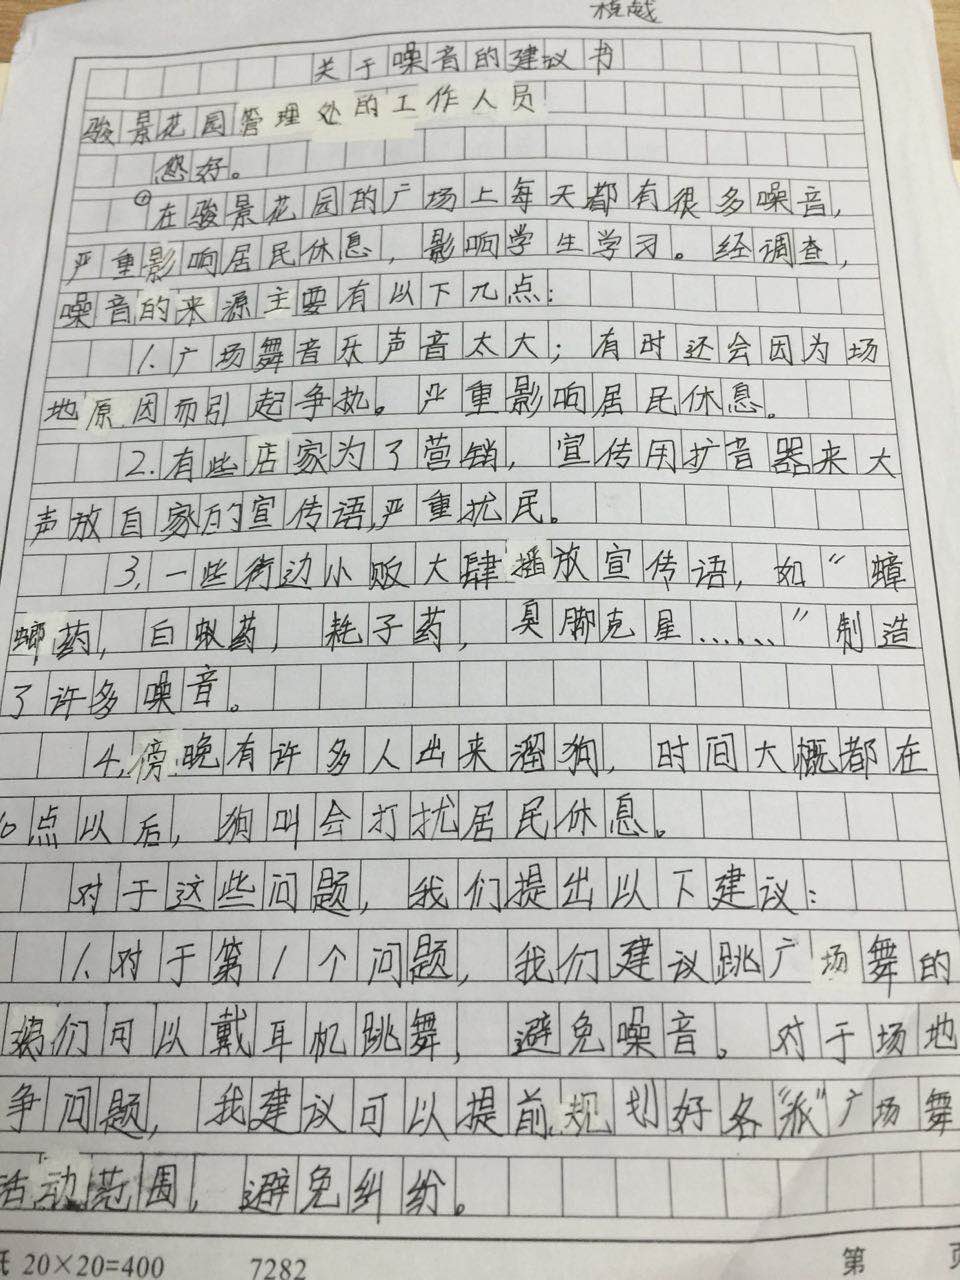 关于噪音的建议书
骏景花园管理处的工作人员
您好。
在骏景花园的广场上每天都有很多噪音,
严重影响居民休息,影响学生学习。经调查,
噪音的来源主要有以下几点:
1.广场舞音乐声音太大;有时还会因为场
地原因而引起争执。严重影响居民休息。
2.有些店家为了营销,宣传用扩音器来大
声放自家的宣传语,严重扰民。
3.一些街边小贩大肆播放宣传语,如“蟑
螂药,白蚁药,耗子药,臭脚克星……”制造
了许多噪音。
4.傍晚有许多人出来溜狗,时间大概都在
10点以后,狗叫会打扰居民休息。
对于这些问题,我们提出以下建议:
1.对于第1个问题,我们建议跳广场舞的
们可以戴耳机跳舞,避免噪音。对于场地
争问题,我建议可以提前规划好各“派”广场舞
活动范围,避免纠纷。
20×20=400 7282 第 页